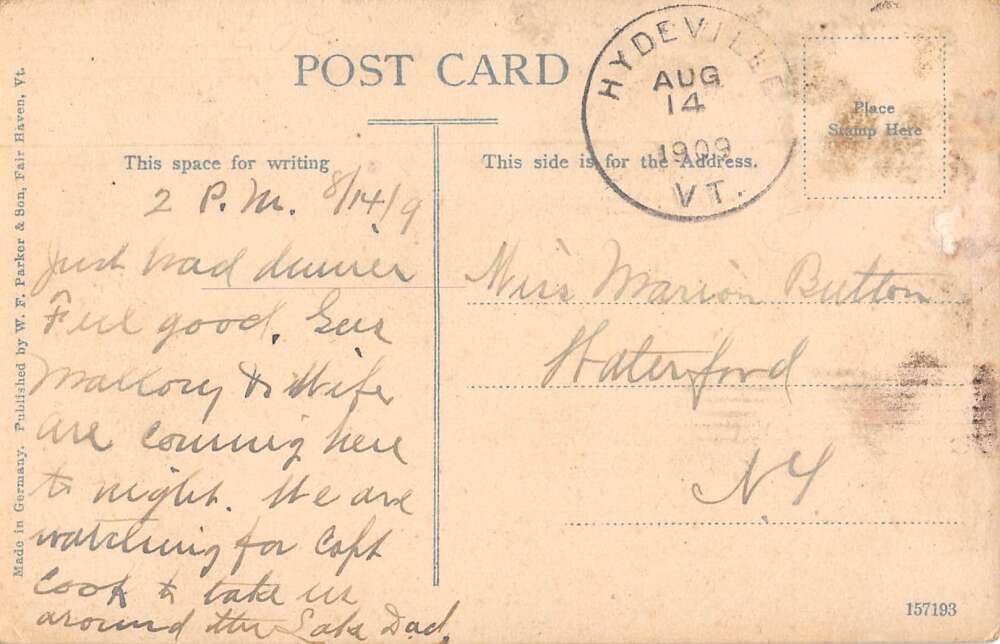 POST CARD
HYDEVILLE
AUG
14
1909
VT.
Place
Stamp Here
This space for writing
This side is for the Address.
2 P.M. 8/14/9
Just had dinner
Feel good. Geo
Mallory & Wife
are coming here
to night. We are
watching for Capt
Cook to take us
around the Lake Dad.
Miss Marion Button
Waterford
NY
Made in Germany. Published by W. F. Parker & Son, Fair Haven, Vt.
157193